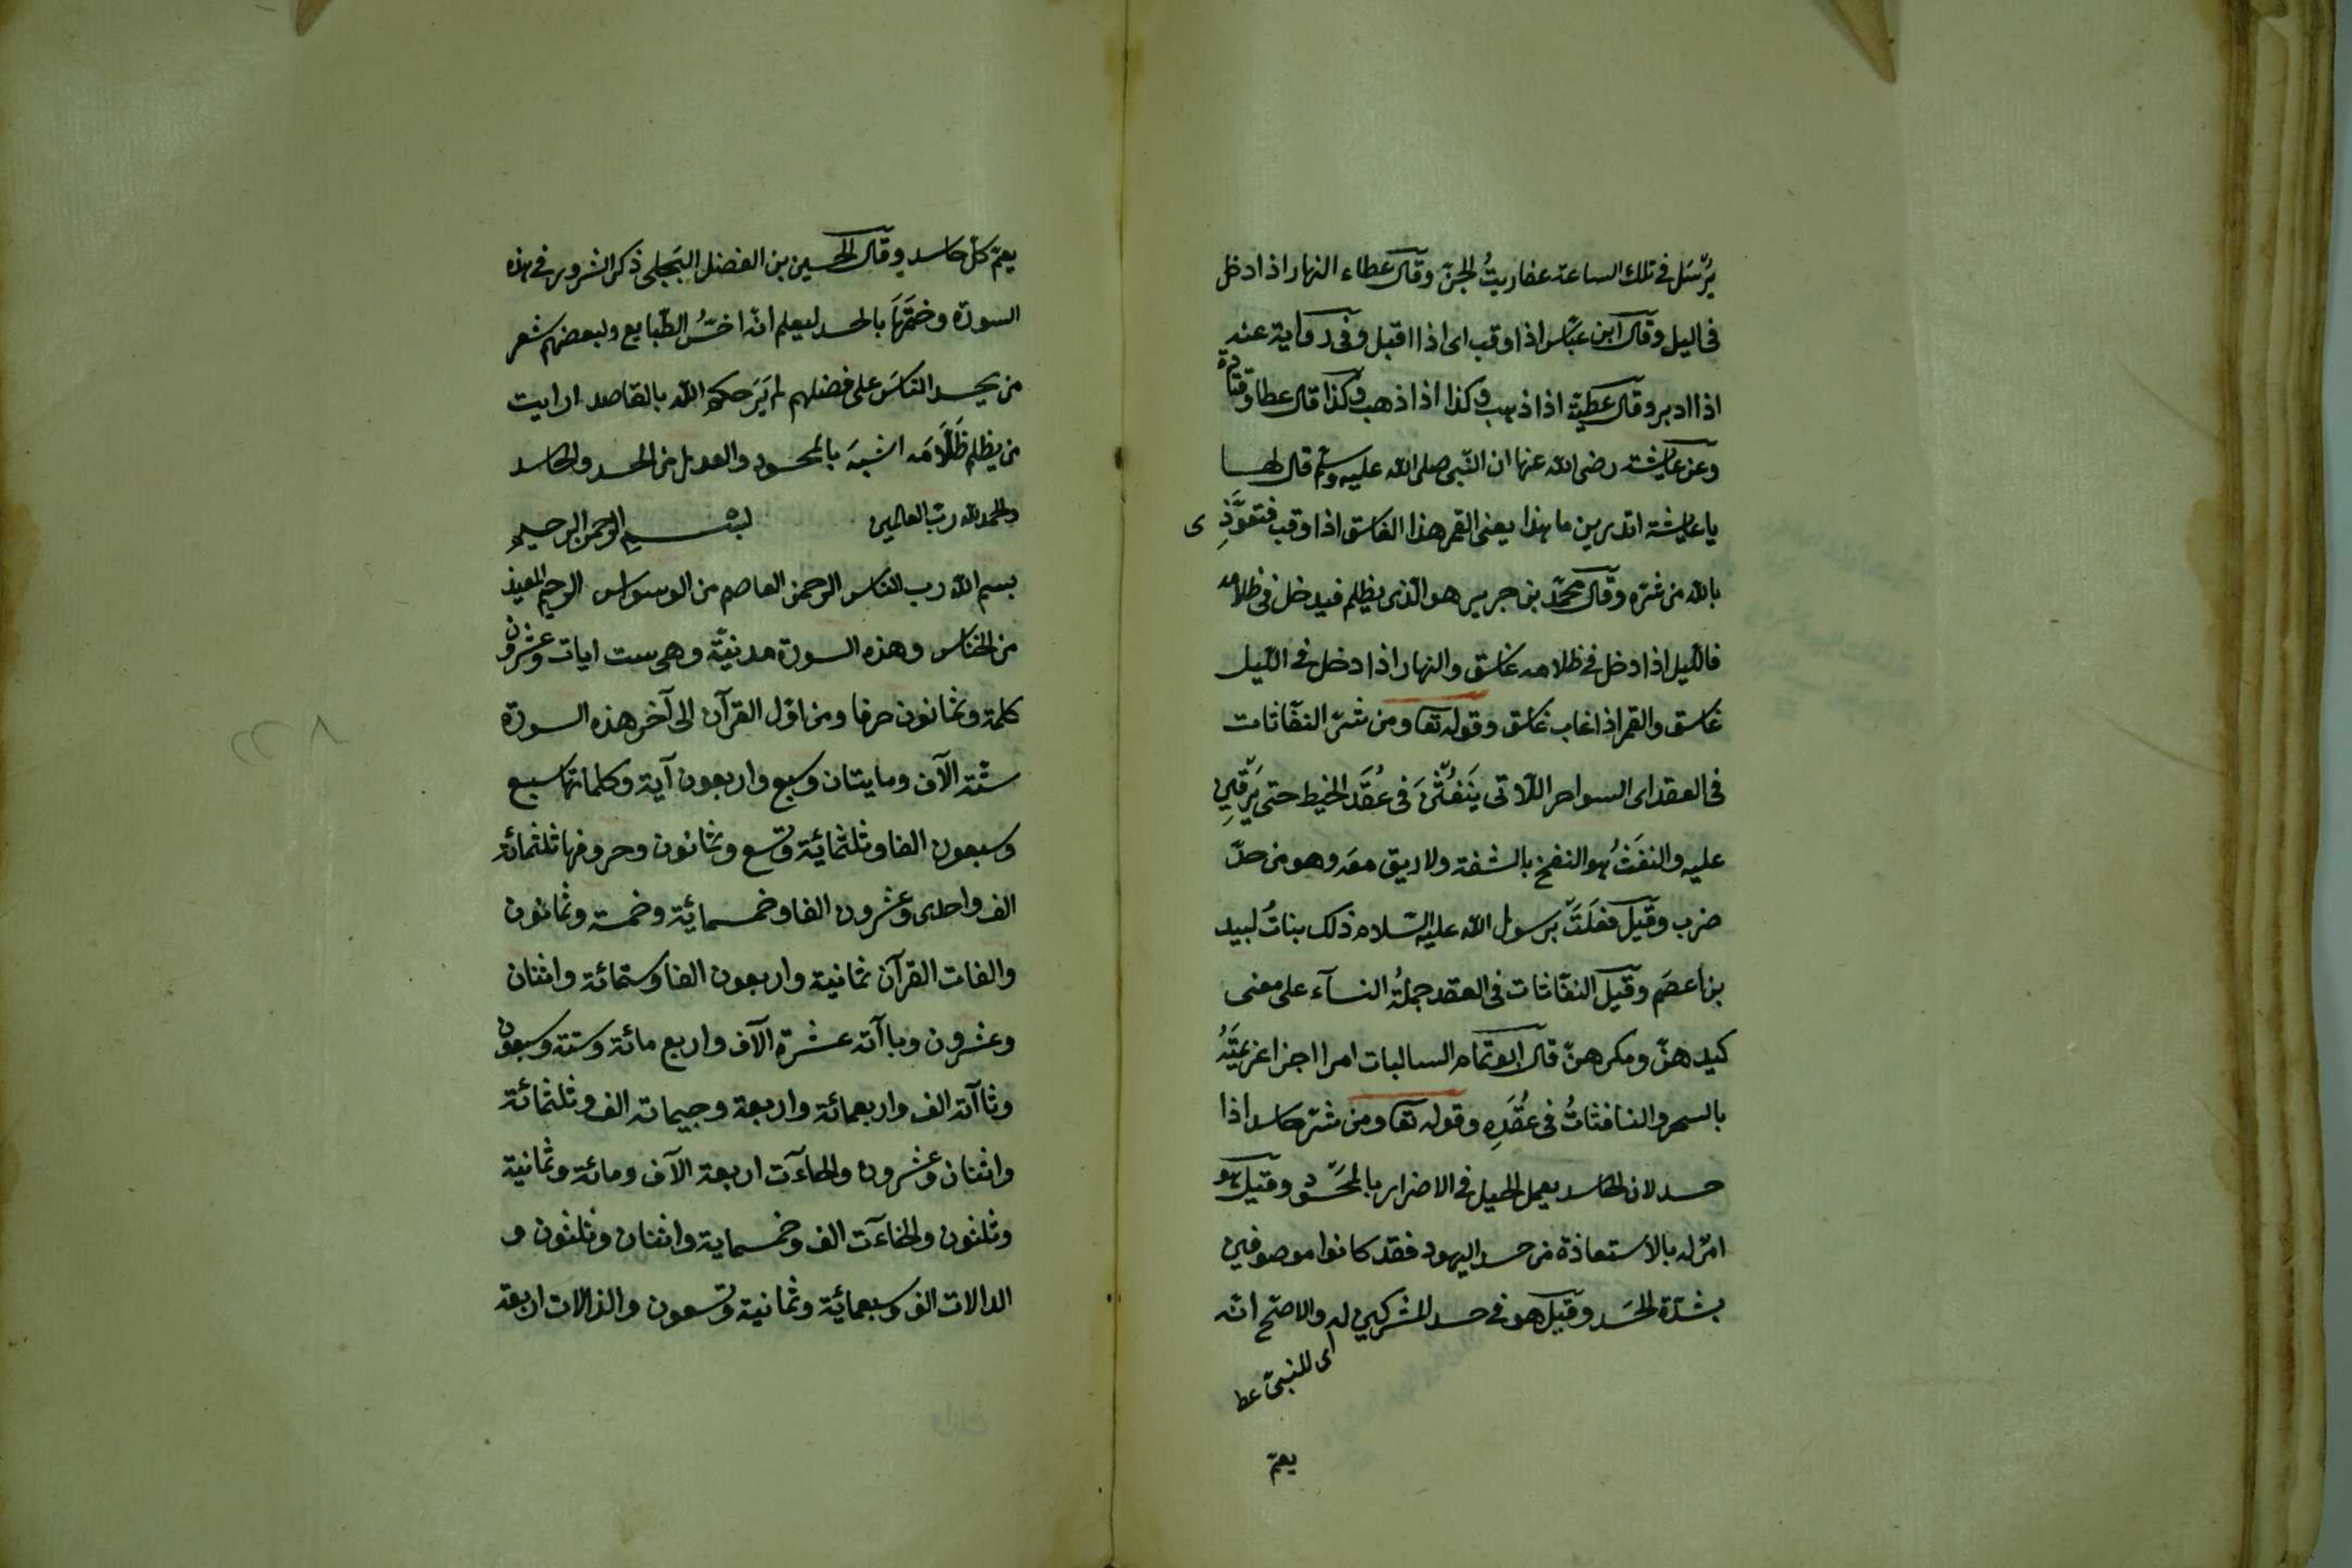 يُرْسَل في تلك الساعة عفاريتُ الجنّ وقال عطاء النهار اذا دخل
في اليل وقال ابن عبّاس اذا وقب اى اذا اقبل وفى رواية عنه
اذا ادبر وقال عطيّة اذا ذهب وكذا اذا ذهب وكذا قال عطا وقتادة
وعن عايشة رضى الله عنها ان النّبى صلى الله عليه وسلّم قال لها
يا عايشة اتدرين ما هذا يعنى القمر هذا الغاسق اذا وقب فتعوَّذِى
بالله من شرّه وقال محمّد بن جرير هو الّذى يظلم فيدخل فى ظلامه
فالّيل اذا دخل فى ظلامه غاسق والنهار اذا دخل فى الّيل
غاسق والقمر اذا غاب غاسق وقوله تعا ومن شرّ النفّاثات
فى العقد اى السواحر اللّاتى يَنْفُثْنَ فى عُقَد الخيط حتى يَرْقِين
عليه والنفَثُ هو النفخ بالشفة ولا ريق معه وهو من حدّ
ضرب وقيل فعلَتَ برسول الله عليه السّلام ذلك بناتُ لبيد
بن اعصَم وقيل النفّاثات فى العقد جملةُ النسآء على معنى
كيدهنّ ومكرهنّ قال ابو تمام السالبات امرا اجزا عزيمتَهُ
بالسحر والنافثاتُ فى عُقَدِه وقوله تعا ومن شرّ حاسد اذا
حسد لان الحاسد يعمل الحيل فى الاضرار بالمحسود وقيل هو
امرٌ له بالاستعاذة من حسد اليهود فقد كانوا موصوفين
بشدّة الحَسد وقيل هو فى حسد المشركين له والاصحّ انّه
اى للنبىّ عط
يعمّ
يعمّ كلّ حاسد وقال الحسين بن الفضل البَجَلى ذكر الشرور فى هذه
السورة وختَمَهَا بالحسد ليعلم انّه اخسُّ الطّبايع ولبعضهم شعر
من يحسد النّاسَ على فضلهم لم يَرَحكم الله بالقاصد ارايت
من يظلم ظَلّامَه اشبهَ بالمحسود والعدل من الحسد والحاسد
والحمد لله ربّ العالمين بسم الله الرحمن الرحيم
بسم الله رب الناس الرحمن العاصم من الوسواس الرحيم المعيذ
من الخناس وهذه السورة مدنيّة وهى ست ايات وعشرون
كلمة وثمانون حرفا ومن اوّل القرآن الى آخر هذه السورة
ستّة الآف ومايتان وسبع واربعون آية وكلماتها سبع
وسبعون الفا وثلثمائة وتسع وثمانون وحروفها ثلثمائة
الف واحدى وعشرون الفا وخمسمائة وخمسة وثمانون
والفات القرآن ثمانية واربعون الفا وستمائة واثنان
وعشرون وباآته عشرة الآف واربع مائة وستة وسبعون
وتاآته الف واربعمائة واربعة وجيماته الف وثلثمائة
واثنان وعشرون والحاءآت اربعة الآف ومائة وثمانية
وثلثون والخاءآت الف وخمسماية واثنان وثلثون و
الدالات الف وسبعمائة وثمانية وتسعون والذالات اربعة